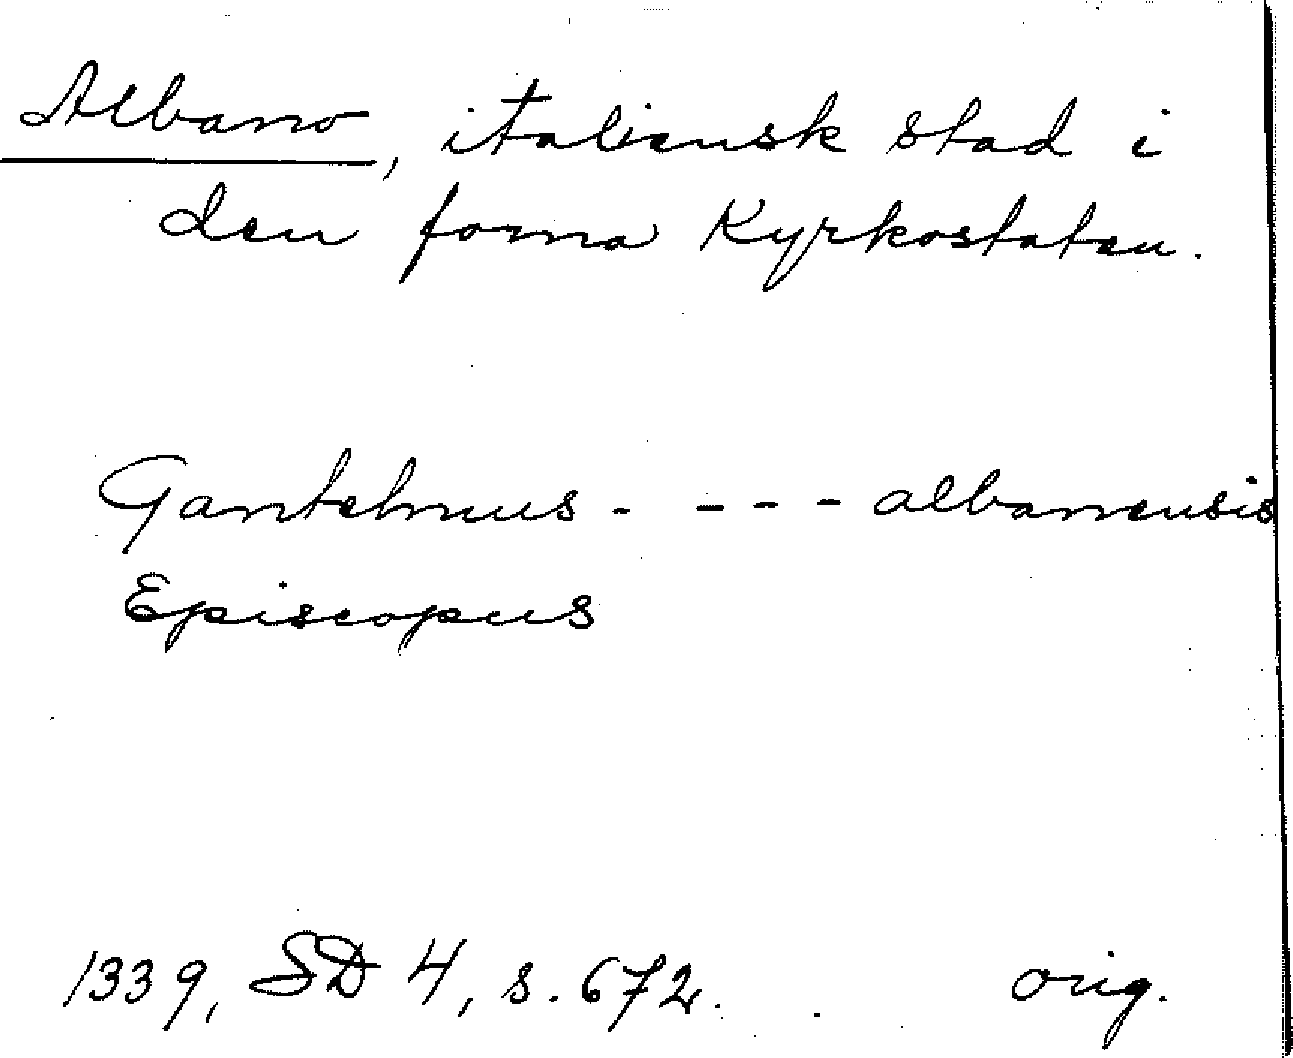 Albano, italiensk stad i
den forna Kyrkostaten.
Gantelmus - - - - albanensis
Episcopus
1339, SD 4, s. 672. orig.